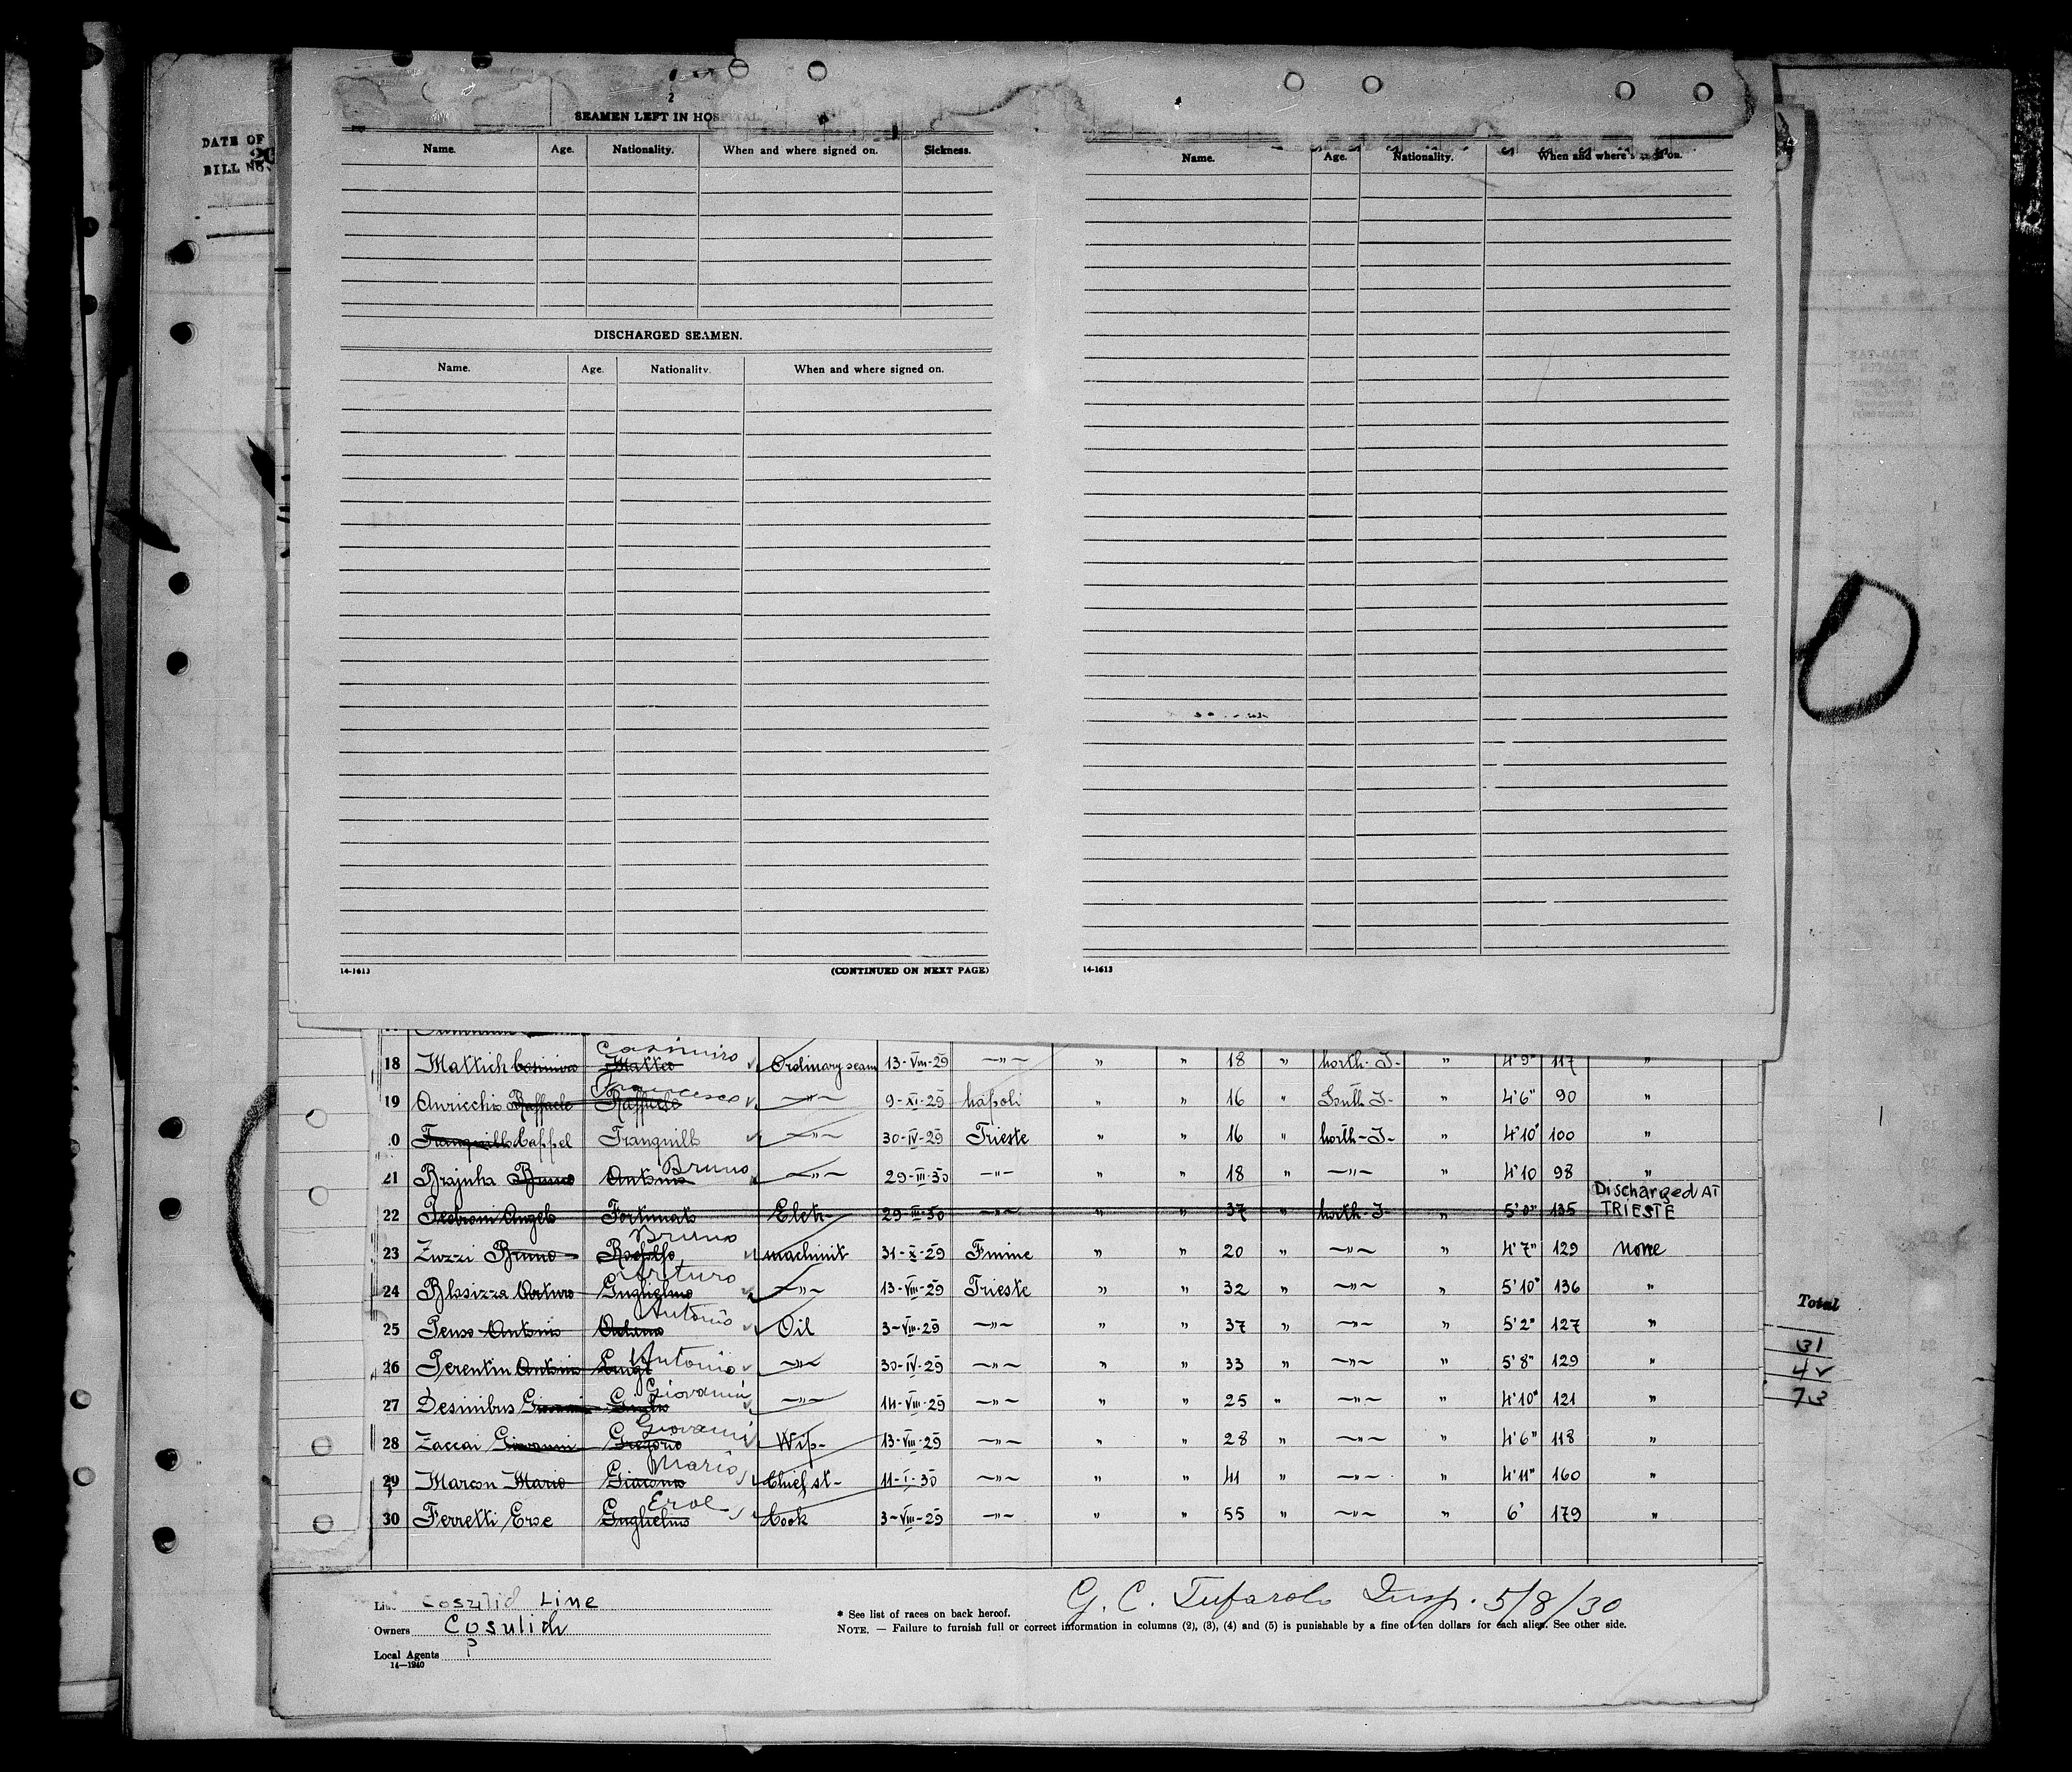 DATE OF
BILL NO.
2
SEAMEN LEFT IN HOSPITAL
Name. Age. Nationality. When and where signed on. Sickness.
DISCHARGED SEAMEN.
Name. Age. Nationality. When and where signed on.
14-1613 (CONTINUED ON NEXT PAGE)
Name. Age. Nationality. When and where signed on.
14-1613
18 Mattich Casimiro Matteo Casimiro Ordinary seam 13-VIII-29 —"— " " 18 " north-I- " 4'9" 117 "
19 Auricchio Raffaele Raffaele Francesco —"— 9-XI-29 Napoli " " 16 " South I- " 4'6" 90 "
20 Tranquillo Cappel Tranquillo —"— 30-IV-29 Trieste " " 16 " north-I- " 4'10" 100 "
21 Brajuha Bruno Antonio Bruno —"— 29-III-30 —"— " " 18 " —"— " 4'10 98 "
22 Pedroni Angelo Fortunato Elctr- 29-III-30 —"— " " 37 " north-I- " 5'8" 135 Discharged AT TRIESTE
23 Zuzzi Bruno Rodolfo Bruno machinit 31-X-29 Fiume " " 20 " —"— " 4'7" 129 None
24 Blasizza Arturo Guglielmo Arturo —"— 13-VIII-29 Trieste " " 32 " —"— " 5'10" 136 "
25 Penso Antonio Antonio Oil 3-VIII-29 —"— " " 37 " —"— " 5'2" 127 "
26 Perentin Antonio Luigi Antonio —"— 30-IV-29 —"— " " 33 " —"— " 5'8" 129 "
27 Desinibus Giovanni Giovanni —"— 14-VIII-29 —"— " " 25 " —"— " 4'10" 121 "
28 Zaccai Giovanni Gregorio Giovanni Wip- 13-VIII-29 —"— " " 28 " —"— " 4'6" 118 "
29 Marcon Mario Giacomo Mario Chief st- 11-I-30 —"— " " 41 " —"— " 4'11" 160 "
30 Ferretti Eroe Guglielmo Eroe Cook 3-VIII-29 —"— " " 55 " —"— " 6' 179 "
Total
31
42
73
Line Cosulich Line
Owners Cosulich
Local Agents ?
14—1240
G. C. Tufarolo Insp. 5/8/30
* See list of races on back hereof.
NOTE. — Failure to furnish full or correct information in columns (2), (3), (4) and (5) is punishable by a fine of ten dollars for each alien. See other side.